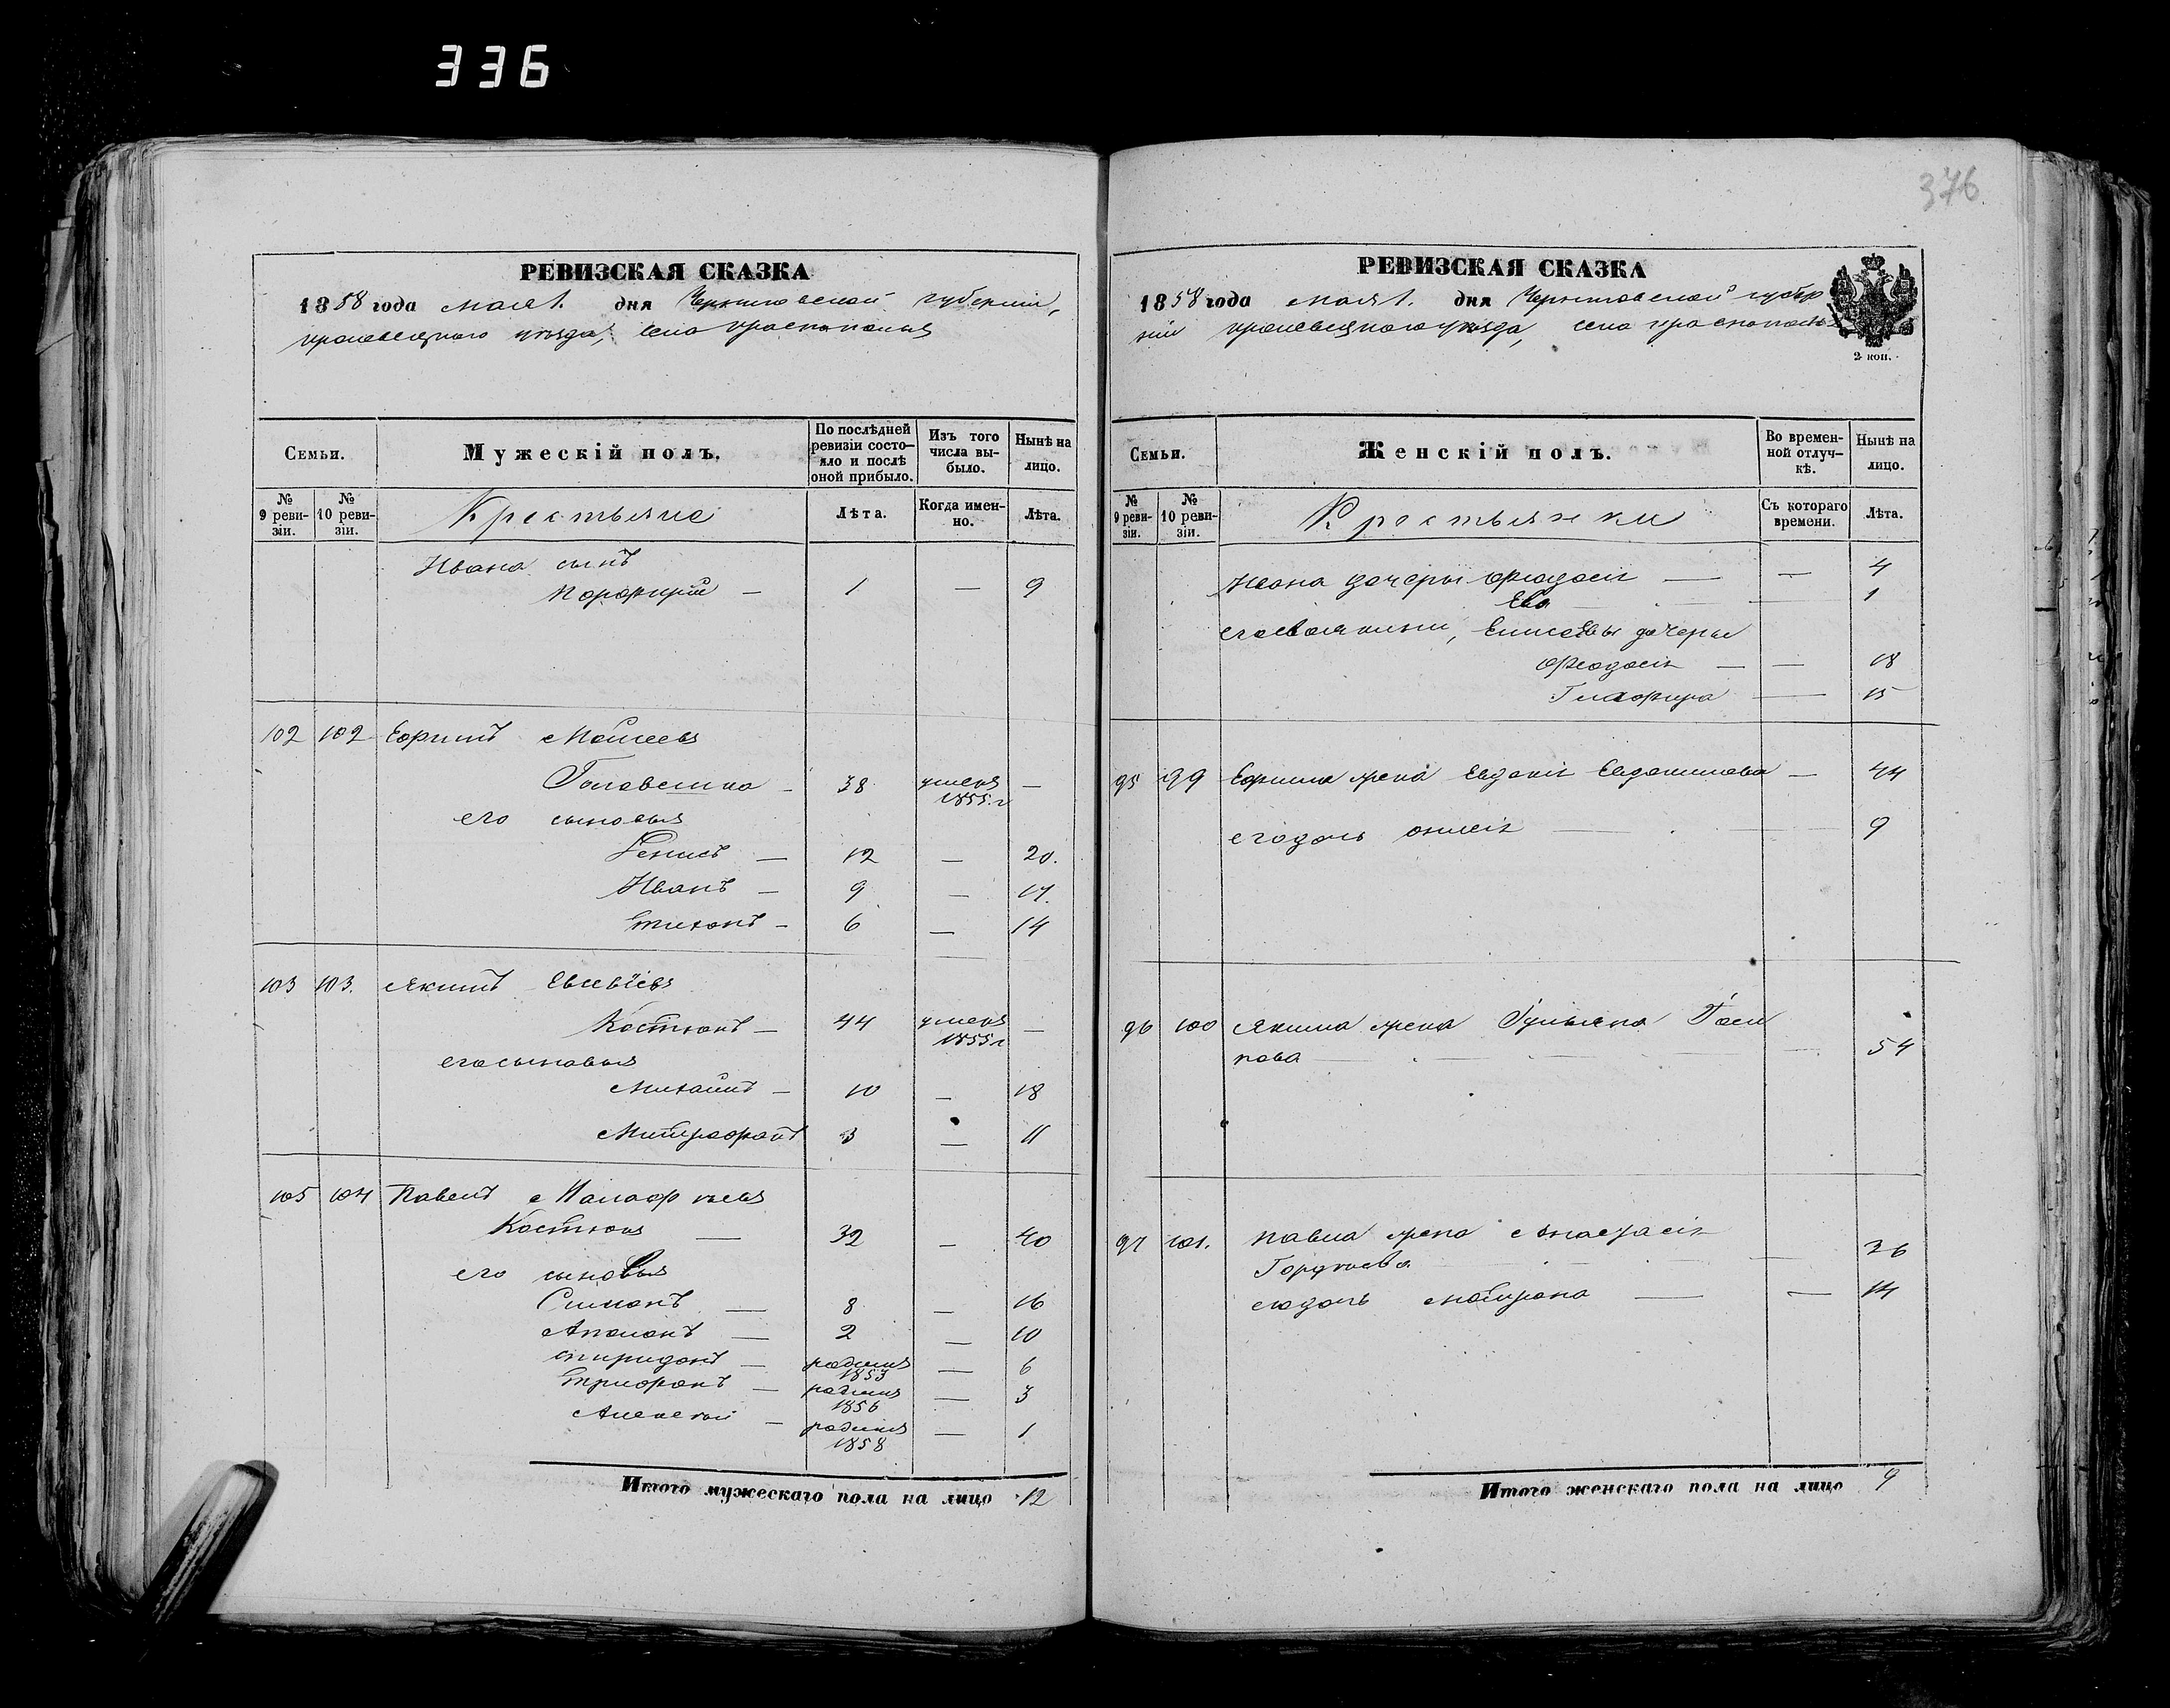 336
376
РЕВИЗСКАЯ СКАЗКА
1858 года мая 1. дня Черниговской губернии,
кролевецкого уезда, село Краснополья
Семьи.
Мужескій полъ.
По послѣдней ревизіи состо-яло и послѣ оной прибыло.
Изъ того числа вы-было.
Нынѣ на лицо.
№ 9 реви-зіи.
№ 10 реви-зіи.
Крестьяне
Лѣта.
Когда имен-но.
Лѣта.
Ивана сынъ
Порфирій — 1 — 9
102 102 Ефимъ Моисеевъ
Головешка — 38 умеръ 1855 г —
его сыновья
Денисъ — 12 — 20.
Иванъ — 9 — 17.
Тихонъ — 6 — 14
103 103. Якимъ Евсевіевъ
Костюкъ — 44 умеръ 1855 г —
его сыновья
Михаилъ — 10 — 18
Митрофанъ 3 — 11
105 104 Павелъ
Костюкъ — 32 — 40
его сыновья
Симонъ — 8 — 16
Аполонъ — 2 — 10
Спиридонъ — родился 1853 — 6
Трифонъ — родился 1856 — 3
Алексей — родился 1858 — 1
Итого мужескаго пола на лицо 12
РЕВИЗСКАЯ СКАЗКА
1858 года мая 1. дня Черниговской губер
ніи кролевецкого уезда, село Краснополья
2 коп.
Семьи.
Женскій полъ.
Во времен-ной отлуч-кѣ.
Нынѣ на лицо.
№ 9 реви-зіи.
№ 10 реви-зіи.
Крестьянки
Съ котораго времени.
Лѣта.
Ивана дочеры Феодосія — — 4
Ева — 1
его Елисевы дочеры
Феодосія — — 18
Глафира — 15
95 99 Ефима жена Евдокія Евдокимова — 44
его дочь — 9
96 100 Якима жена Гульяна
пова — — 54
97 101. Павла жена Анастасія
Гордеева — 36
его дочь Матрона — — 14
Итого женскаго пола на лицо 9